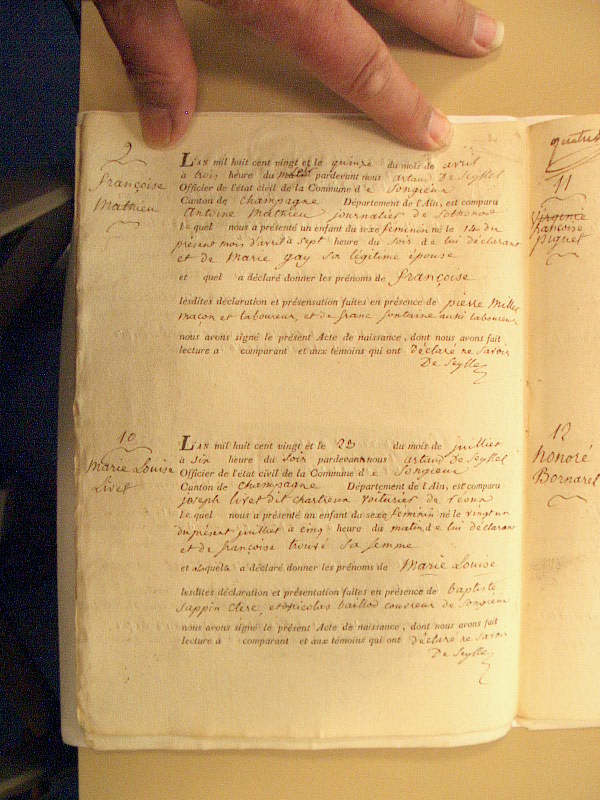 2
françoise
Mathieu
L'AN mil huit cent vingt et le quinze du mois de avril
à trois heure du pardevant nous artaud De Seyssel
Officier de l'état civil de la Commune de Songieux
Canton de Champagne Département de l'Ain, est comparu
Antoine Mathieu journalier de Sothonod
Lequel nous a présenté un enfant du sexe feminin né le 14 du
présent mois d'avril a sept heure du Soir de lui déclarant
et de Marie gay sa légitime épouse
et quel a déclaré donner les prénoms de françoise
lesdites déclaration et présentation faites en présence de pierre Millet
maçon et laboureur, et de franc fontaine aussi laboureur
nous avons signé le présent Acte de naissance, dont nous avons fait
lecture a comparant et aux témoins qui ont Déclaré ne Savoir
De Seyssel
10
Marie Louise
Livet
L'AN mil huit cent vingt et le 23 du mois de juilliet
à six heure du Soir pardevant nous artaud De Seyssel
Officier de l'état civil de la Commune de Songieux
Canton de Champagne Département de l'Ain, est comparu
joseph livet dit chartreux voiturier de
Lequel nous a présenté un enfant du sexe feminin né le vingt un
du présent juilliet a cinq heure du matin de lui déclarant
et de françoise trouvé sa femme
et auquel a déclaré donner les prénoms de Marie Louise
lesdites déclaration et présentation faites en présence de baptiste
Sappin clerc, et nicolas baillod de Songieux
nous avons signé le présent Acte de naissance, dont nous avons fait
lecture à comparant et aux témoins qui ont Déclaré ne Savoir
De Seyssel
11
Virginie
françoise
piquet
12
honoré
Bornarel